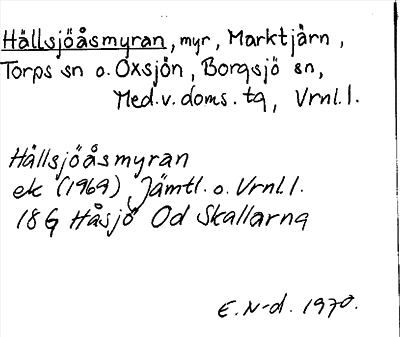 Hällsjöåsmyran, myr, Marktjärn,
Torps sn o. Oxsjön, Borgsjö sn,
Med.v.doms.tg, Vrnl.l.
Hällsjöåsmyran
ek (1969) Jämtl. o. Vrnl.l.
18G Håsjö Od Skallarna
E. N-d. 1970.